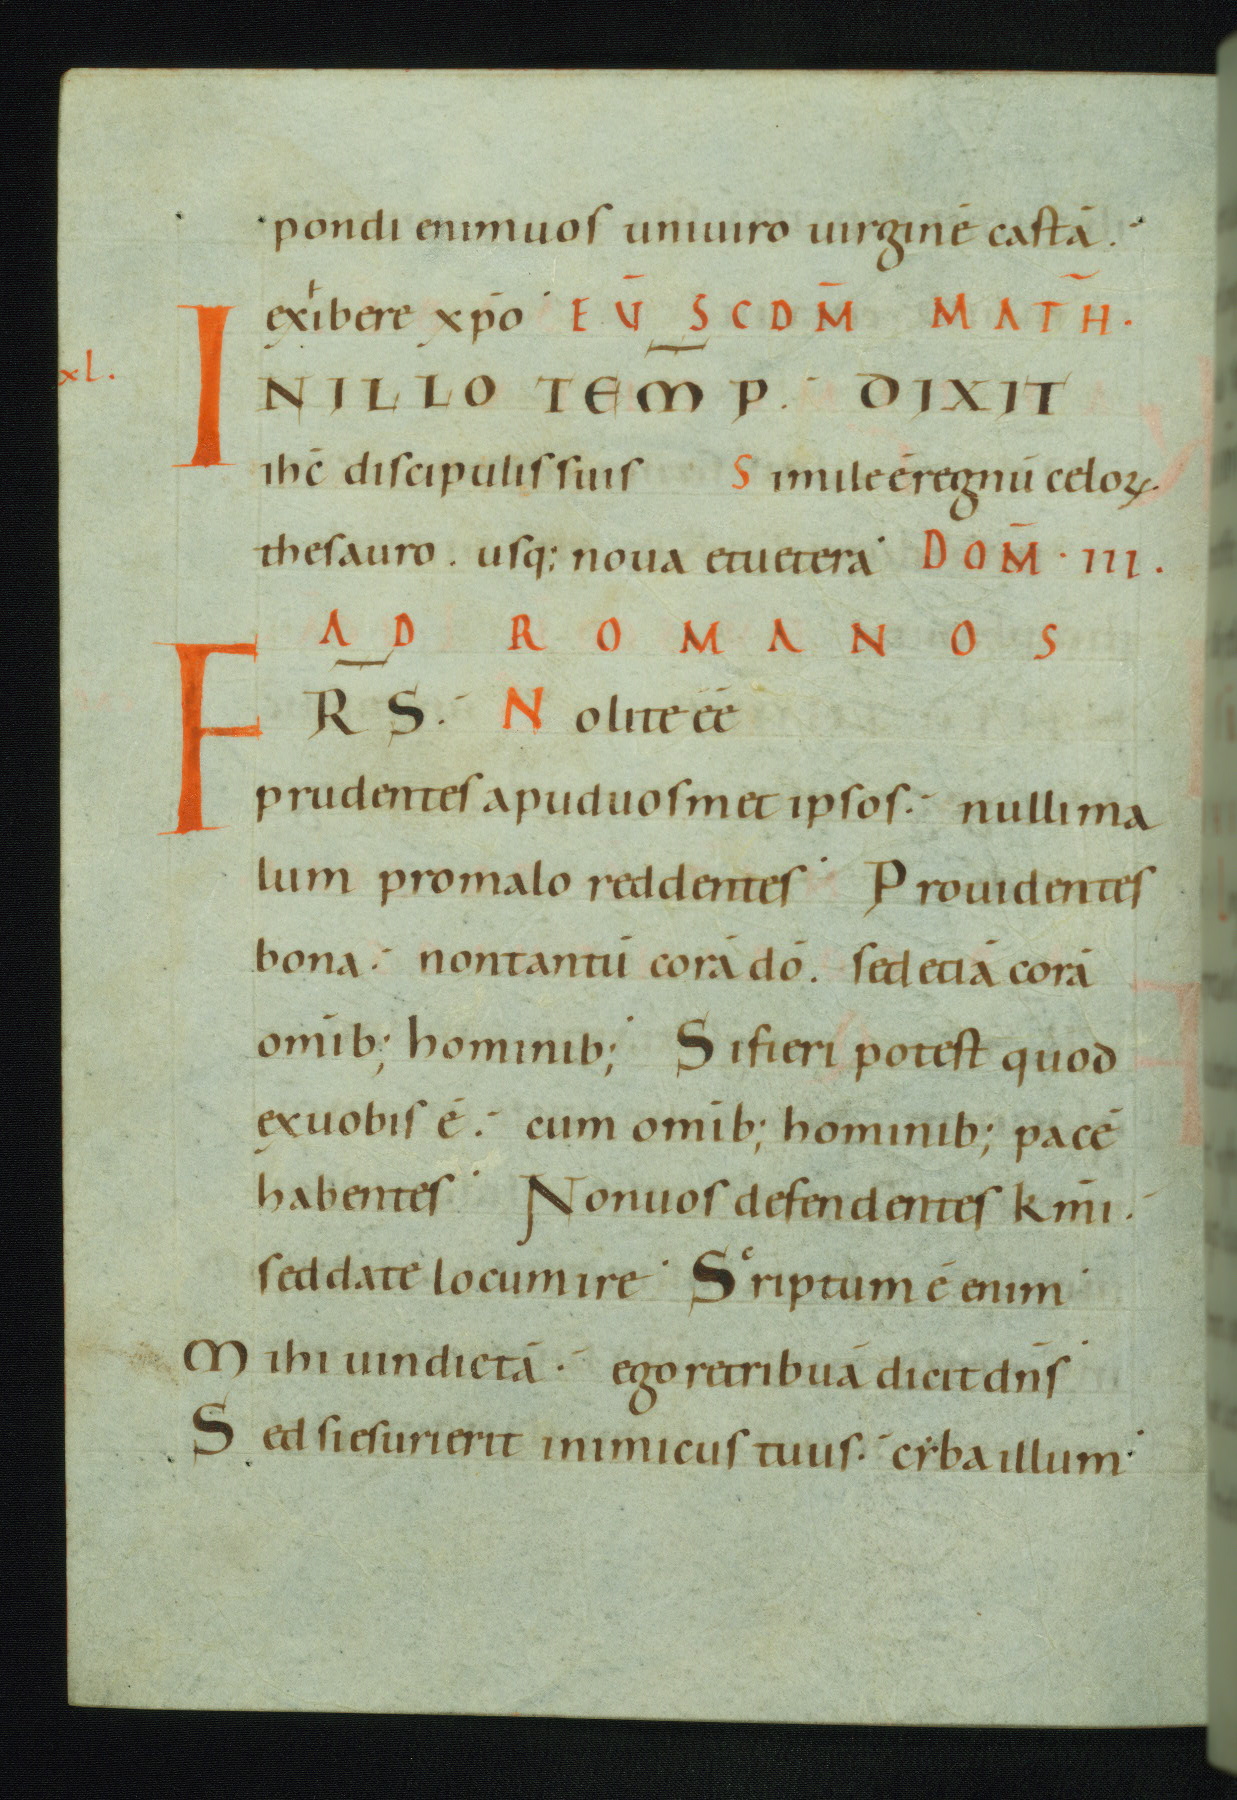 pondi enim uos uni uiro uirginē castā.
exhibere xp̄o EṼ SCDM̄ MATH̄.
xl.
IN ILLO TEM̄P. DIXIT
ih̄c discipulis suis Simile ē regnū celoꝝ
thesauro. usq; noua et uetera DOM̄·III.
AD ROMANOS
FRS̄. Nolite ēē
prudentes apud uosmet ipsos. nulli ma
lum pro malo reddentes Prouidentes
bona. non tantū corā dō. sed etiā corā
om̄ib; hominib; Si fieri potest quod
ex uobis ē. cum om̄ib; hominib; pacē
habentes Non uos defendentes km̄i.
sed date locum ire Scriptum ē enim
Mihi uindictā. ego retribuā dicit dn̄s
Sed si esurierit inimicus tuus. cyba illum